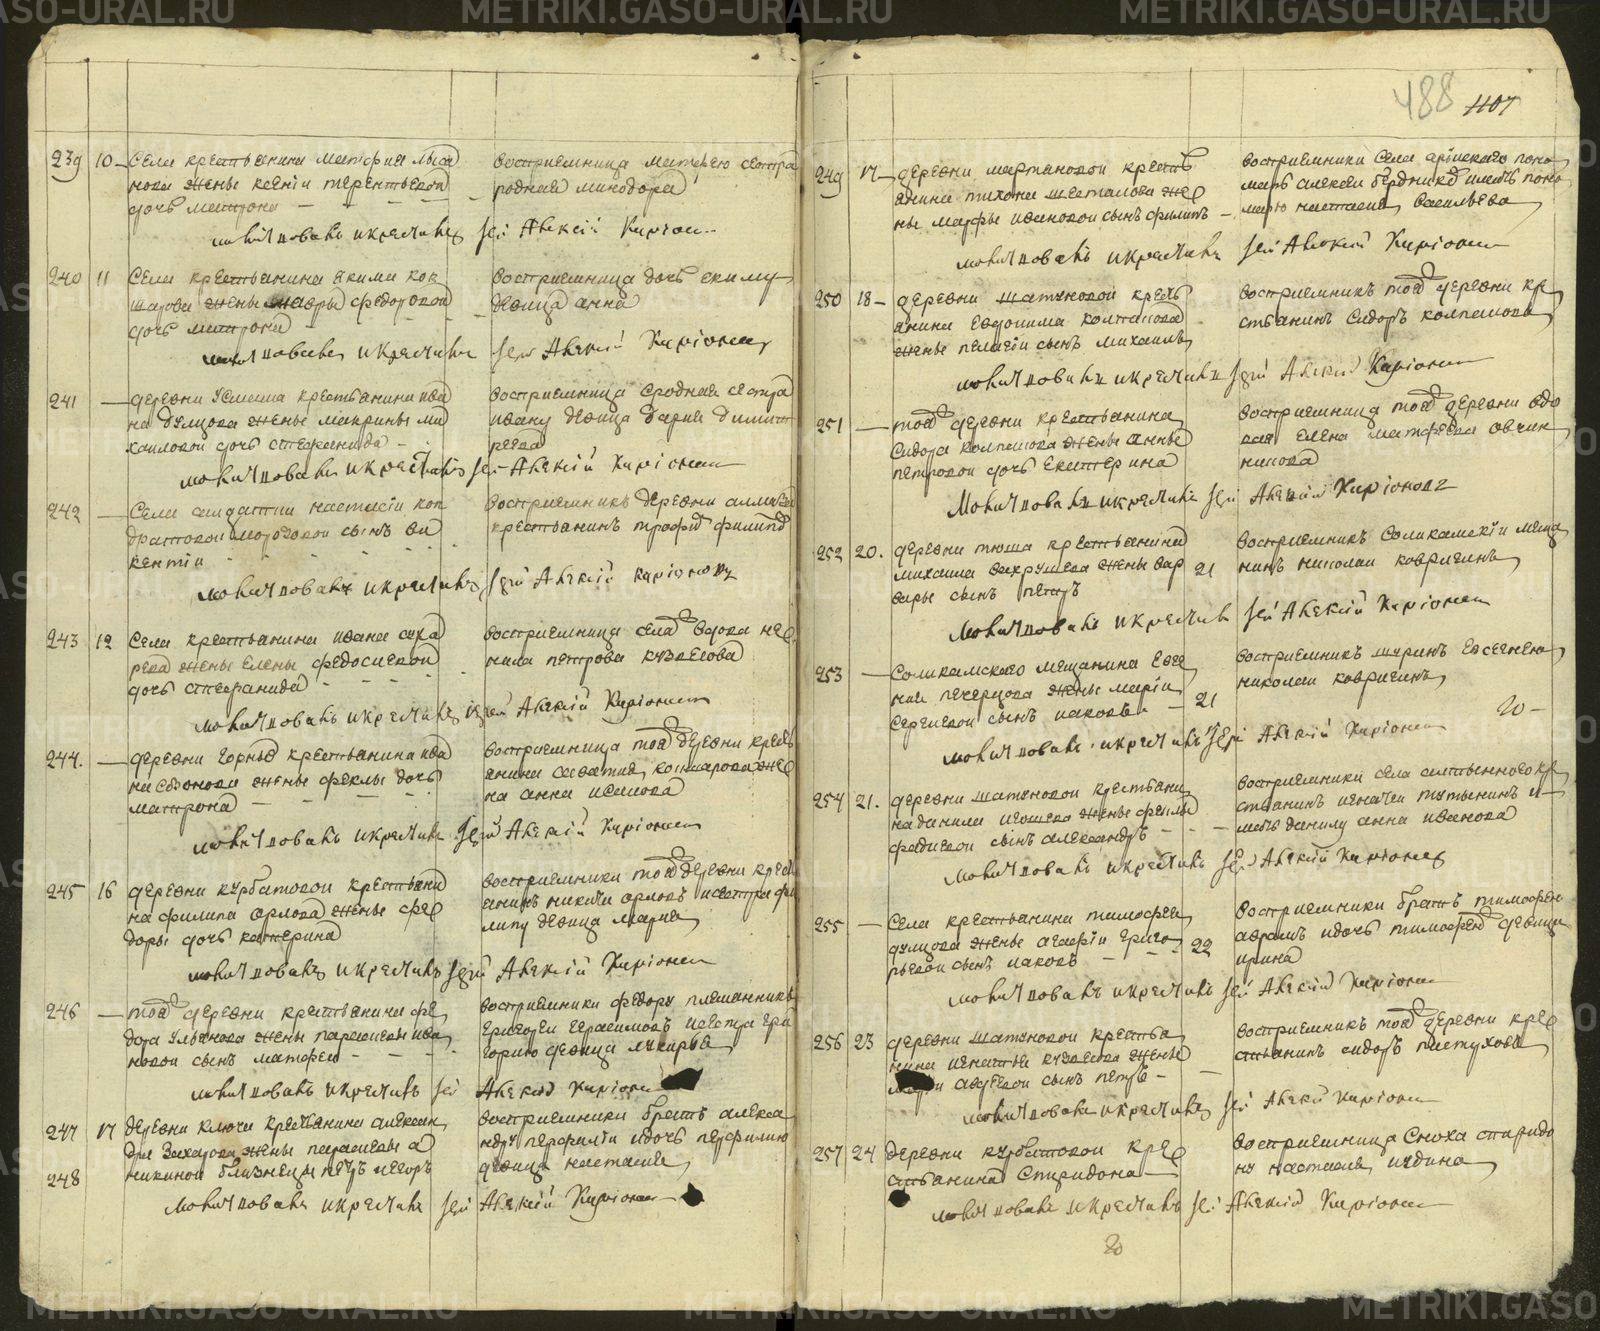 METRIKI.GASO-URAL.RU
488 1107
239 10 Села крестьянина матфия лыса
нова жены ксении терентьевой
дочь матрона
восприемница матфею сестра
родная минодора
молитвовалъ и крестилъ іерей Алексій Киріонов
240 11 Села крестьянина екима кок
шарова жены мавры федоровой
дочь матрона
восприемница дочь екиму
девица анна
молитвовалъ и крестилъ іерей Алексій Киріонов
241 деревни крестьянина ива
на жены макрины ми
хаиловой дочь стефанида
восприемница сродная сестра
ивану девица дария димит
реева
молитвовалъ и крестилъ іерей Алексій Киріонов
242 Села настасіи кон
дратовой морозовой сынъ ви
кентіи
восприемникъ деревни
крестьянинъ трофим филипов
молитвовалъ и крестилъ іерей Алексій Киріонов
243 12 Села крестьянина ивана суха
рева жены елены федосиевой
дочь стефанида
восприемница села вдова не
нила петрова кузвесова
молитвовалъ и крестилъ іерей Алексій Киріонов
244. деревни горные крестьянина ива
на жены феклы дочь
матрона
восприемница той деревни кресть
янина саватия кокшарова же
на анна исакова
молитвовалъ и крестилъ іерей Алексій Киріонов
245 16 деревни курбатовой крестьяни
на филипа орлова жены фео
доры дочь катерина
восприемники той деревни кресть
янинъ никита орловъ и сестра фи
липу девица мария
молитвовалъ и крестилъ іерей Алексій Киріонов
246 той деревни крестьянина фе
дота ульянова жены парасковьи ива
новой сынъ матфеи
восприемники федору племянникъ
григореи герасимовъ и сестра гри
горию девица лукирья
молитвовалъ и крестилъ іерей Алексій Киріонов
247 17 деревни ключи крестьянина алексан
дра захарова жены парасковьи а
248 никиной близнецы петръ и егоръ
восприемники братъ алекса
ндру перфилеи и дочь перфилию
девица настасия
молитвовалъ и крестилъ іерей Алексій Киріонов
249 17 деревни мартыновой кресть
янина тихона шесталова же
ны марфы ивановой сынъ филипъ
восприемники села арийского поно
марь алексеи бердниковъ и мать поно
марю настасия васильева
молитвовалъ и крестилъ іерей Алексій Киріонов
250 18 деревни шатуновой кресть
янина евдокима колпакова
жены пелагіи сынъ михаилъ
восприемникъ той деревни кре
стьянинъ сидоръ колпакова
молитвовалъ и крестилъ іерей Алексій Киріонов
251 той деревни крестьянина
сидора колпакова жены анны
петровой дочь екатерина
восприемница той деревни вдо
вая елена матфеева овчин
никова
молитвовалъ и крестилъ іерей Алексій Киріонов
252 20. деревни тюша крестьянина
михаила вахрушева жены вар 21
вары сынъ петръ
восприемникъ соликамскіи меща
нинъ николаи ковригинъ
молитвовалъ и крестилъ іерей Алексій Киріонов
253 соликамского мещанина евге
ния печерцова жены маріи 21
сергиевой сынъ иаковъ
восприемникъ шуринъ евсегнею
николаи ковригинъ
20
молитвовалъ и крестилъ іерей Алексій Киріонов
254 21. деревни шатуновой крестьяни
на данила игошева жены феклы
фадиевой сынъ александръ
восприемники села кре
стьянинъ игнатеи тутынинъ и
мать данилу анна иванова
молитвовалъ и крестилъ іерей Алексій Киріонов
255 Села крестьянина тимофея
дулцова жены агафіи григо 22
рьевой сынъ иаковъ
восприемники братъ тимофею
аврамъ и дочь тимофею девица
ирина
молитвовалъ и крестилъ іерей Алексій Киріонов
256 23 деревни шатуновой крестья
нина игнатья жены
авдеевой сынъ петръ
восприемникъ той деревни кре
стьянинъ сидоръ пастухова
молитвовалъ и крестилъ іерей Алексій Киріонов
257 24 деревни курбатовой кре
стьянина спиридона
восприемница сноха спиридо
ну настасия июдина
молитвовалъ и крестилъ іерей Алексій Киріонов
20